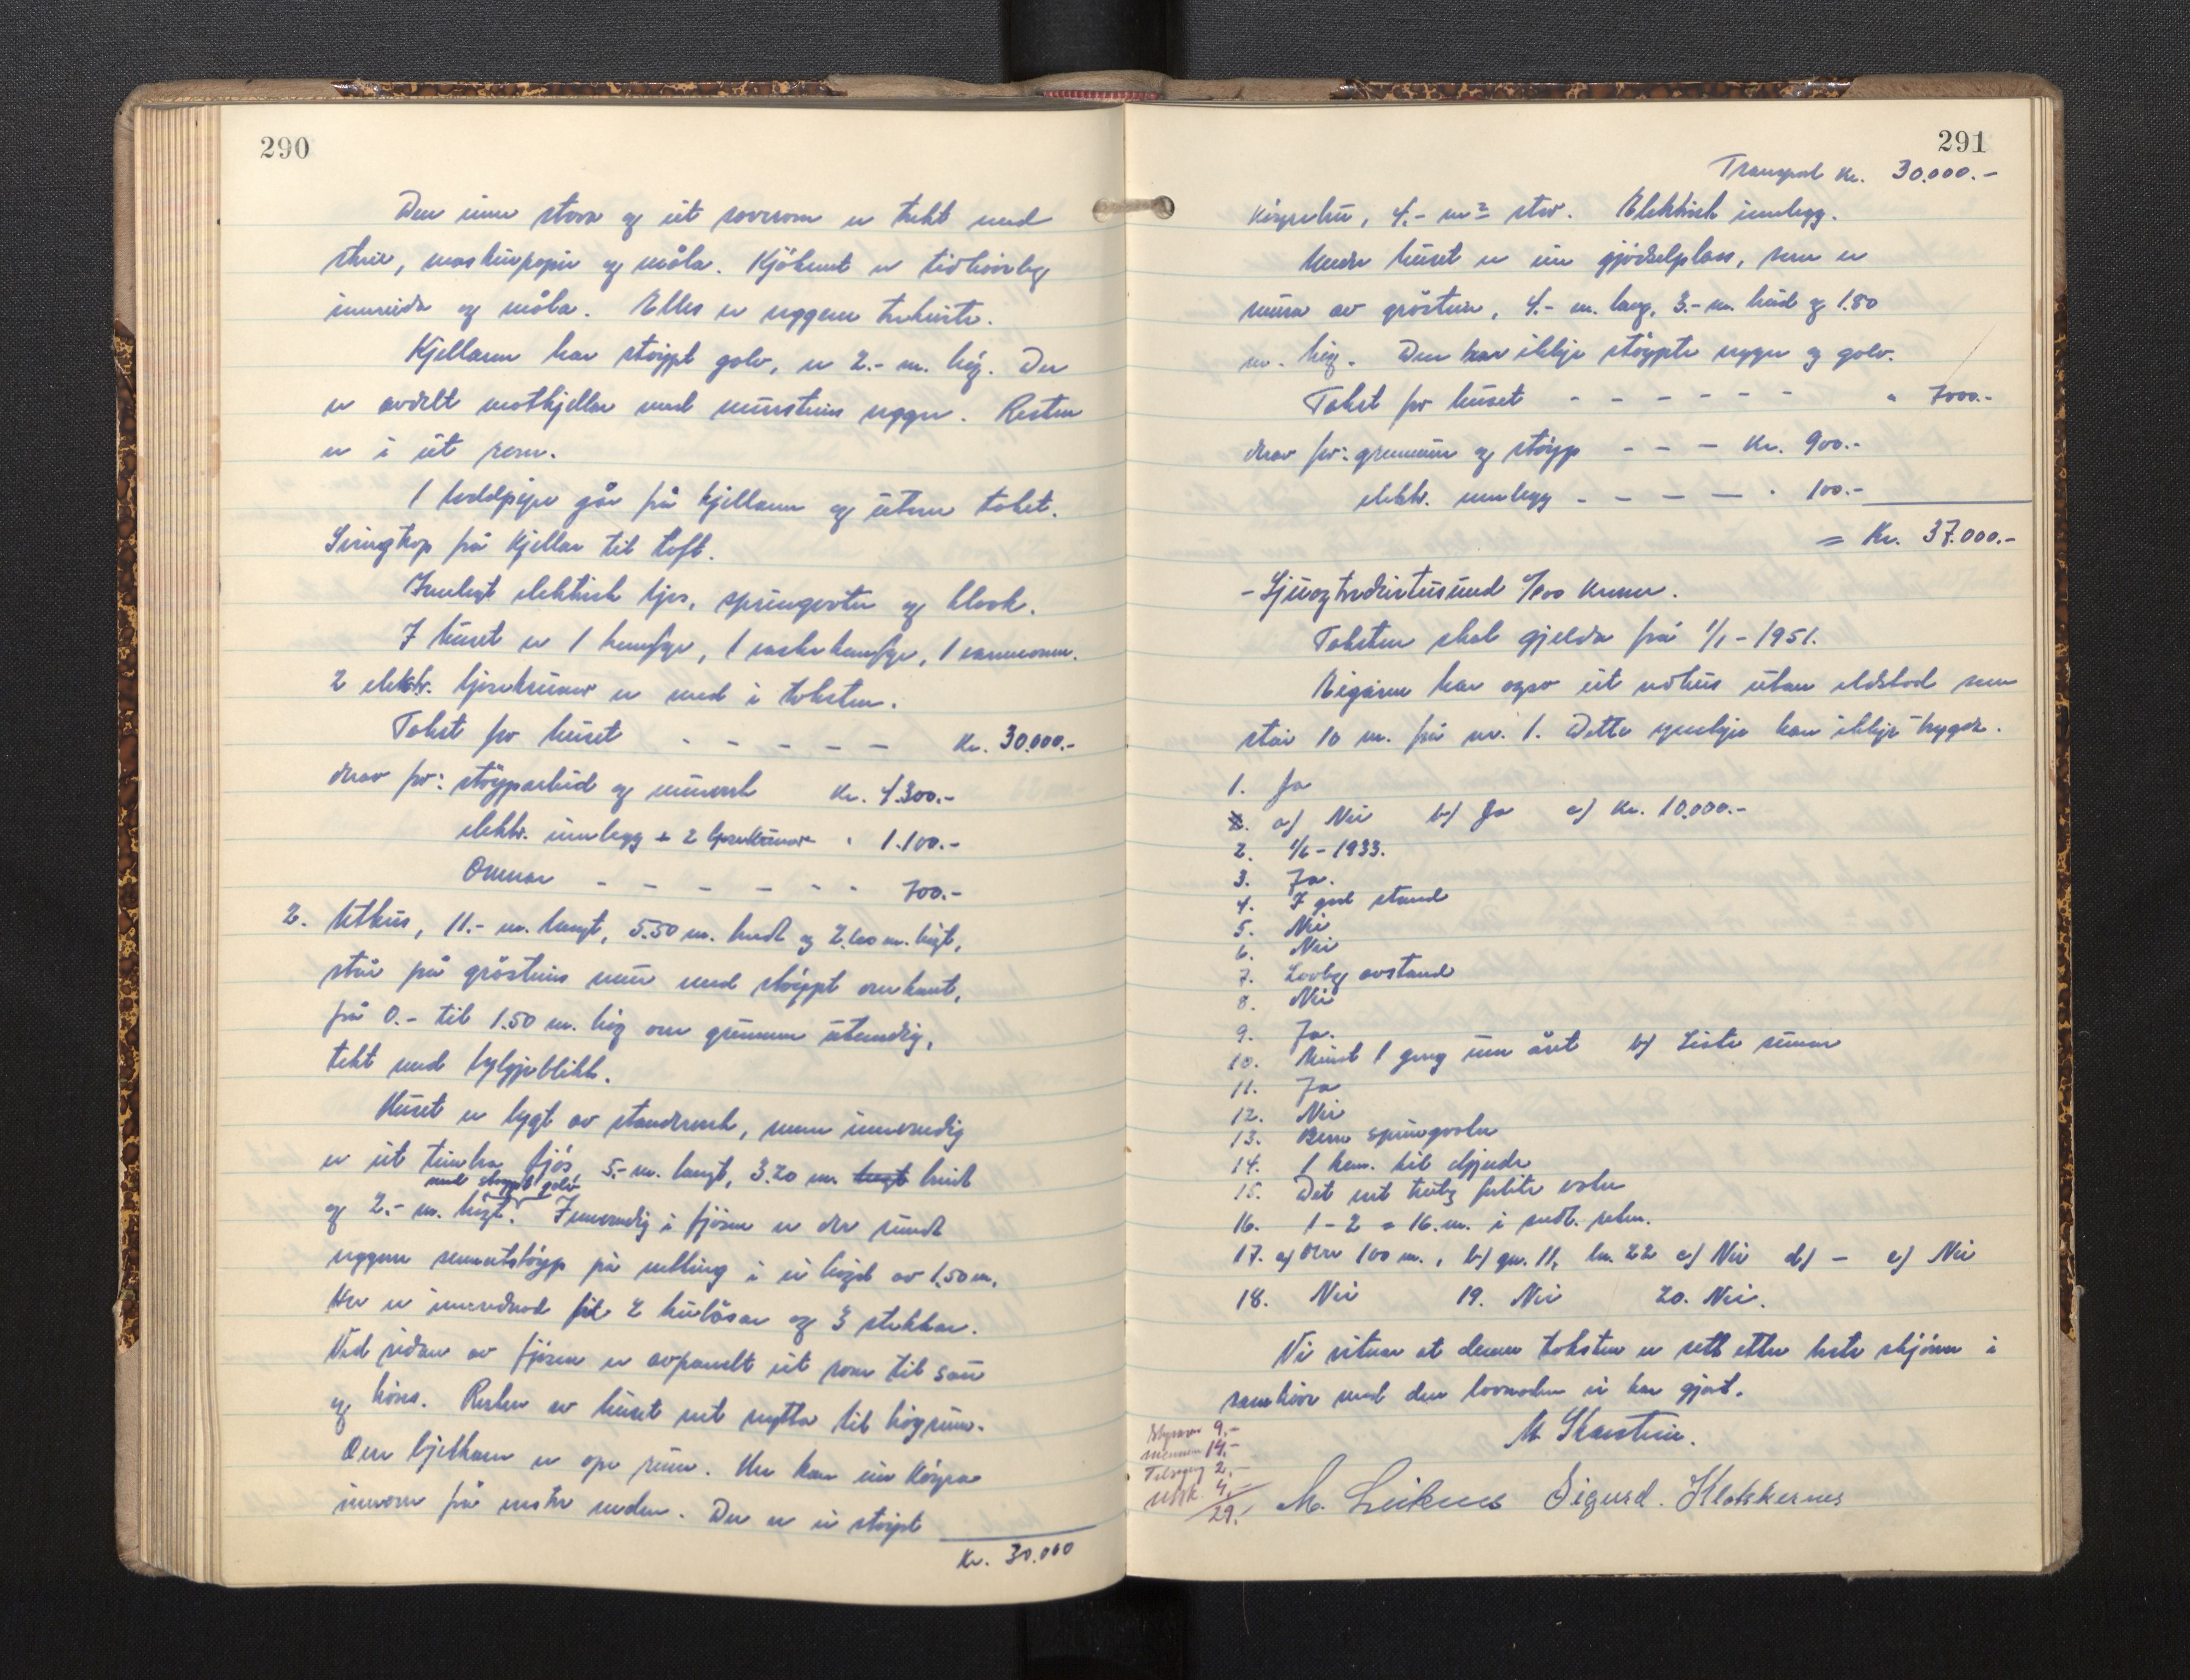 290
Den eine stova og eit soverom er trekt med
strie, maskinpapir og måla. Kjökenet er tidhöveleg
innreida og måla. Elles er veggene trekvite.
Kjellaren har stöypt golv, er 2.- m. hög. Der
er avdelt matkjellar med mursteins vegger. Resten
er i eit rom.
1 teglpipe går frå kjellaren og utover taket.
Svingtrop frå kjellar til loft.
Innlagt elektrisk ljos, springvatn og kloak.
I huset er 1 komfyr, 1 vaskekomfyr, 1 vanneomn.
2 elektr. ljosekruner er med i taksten.
Takst for huset - - - - - Kr. 30.000.-
Derav for: stöyparbeid og murverk Kr. 4.300.-
elektr. innlegg + 2 ljosekruner " 1.100.-
Omnar - - - - - - - 700.-
2. Uthus, 11.- m. langt, 5.50 m. breidt og 2.60 m. högt,
står på gråsteins mur med stöypt overkant,
frå 0.- til 1.50 m. hög over grunnen utvendig,
tekt med bylgjeblikk.
Huset er bygt av standverk, men innvendig
er eit timbra fjös, 5.- m. langt, 3.20 m. högt breidt
med stöypt golv
og 2.- m. högt. Innvendig i fjösen er der rundt
veggene sementstöyp på netting i ei högd av 1.50 m.
Her er innreidnad til 2 kubåsar og 3 stekkar.
Ved sidan av fjösen er avpanelt eit rom til sau
og höns. Resten av huset vert nytta til höyrum.
Over bjelkane er ope rum. Her kan ein köyra
innom frå vestre enden. Der er ei stöypt
Kr. 30.000
291
Transport Kr. 30.000.-
köyrebru, 4.- m² stor. Elektrisk innlegg.
Under huset er ein gjödselplass, som er
mura av gråstein, 4.- m. lang, 3.- m. breid og 1.80
m. hög. Den har ikkje stöypte vegger og golv.
Takst for huset - - - - - - " 7000.-
Derav for: grunnmur og stöyp - - - Kr. 900.-
elektr. innlegg - - - - " 100.-
= Kr. 37.000.-
- Sjuogtredivetusund 0/100 kroner.
Taksten skal gjelda frå 1/1 - 1951.
Eigaren har også eit vedhus utan eldstad som
står 10 m. frå nr. 1. Dette ynskjer han ikkje trygda.
1. Ja
2. a) Nei b) Ja c) Kr. 10.000.-
2. 1/6 - 1933.
3. Ja.
4. I god stand
5. Nei
6. Nei
7. Lovleg avstand
8. Nei
9. Ja.
10. Minst 1 gong um året b) Siste sumar
11. Ja
12. Nei
13. Berre springvatn
14. 1 km. til Gjeide
15. Det vert truleg forlite vatn
16. 1 - 2 = 16. m. i nedb. retn.
17. a) Over 100 m., b) gn. 11, bn. 22 c) Nei d) - e) Nei
18. Nei 19. Nei 20. Nei.
Vi vitnar at denne taksten er sett etter beste skjönn i
samhöve med den lovnaden vi har gjort.
M Skarstein.
Skysson 9.-
mennene 14.-
Tilsyn 2.-
utsk. 4.-
29.-
M. Leiknes Sigurd. Klakkernes